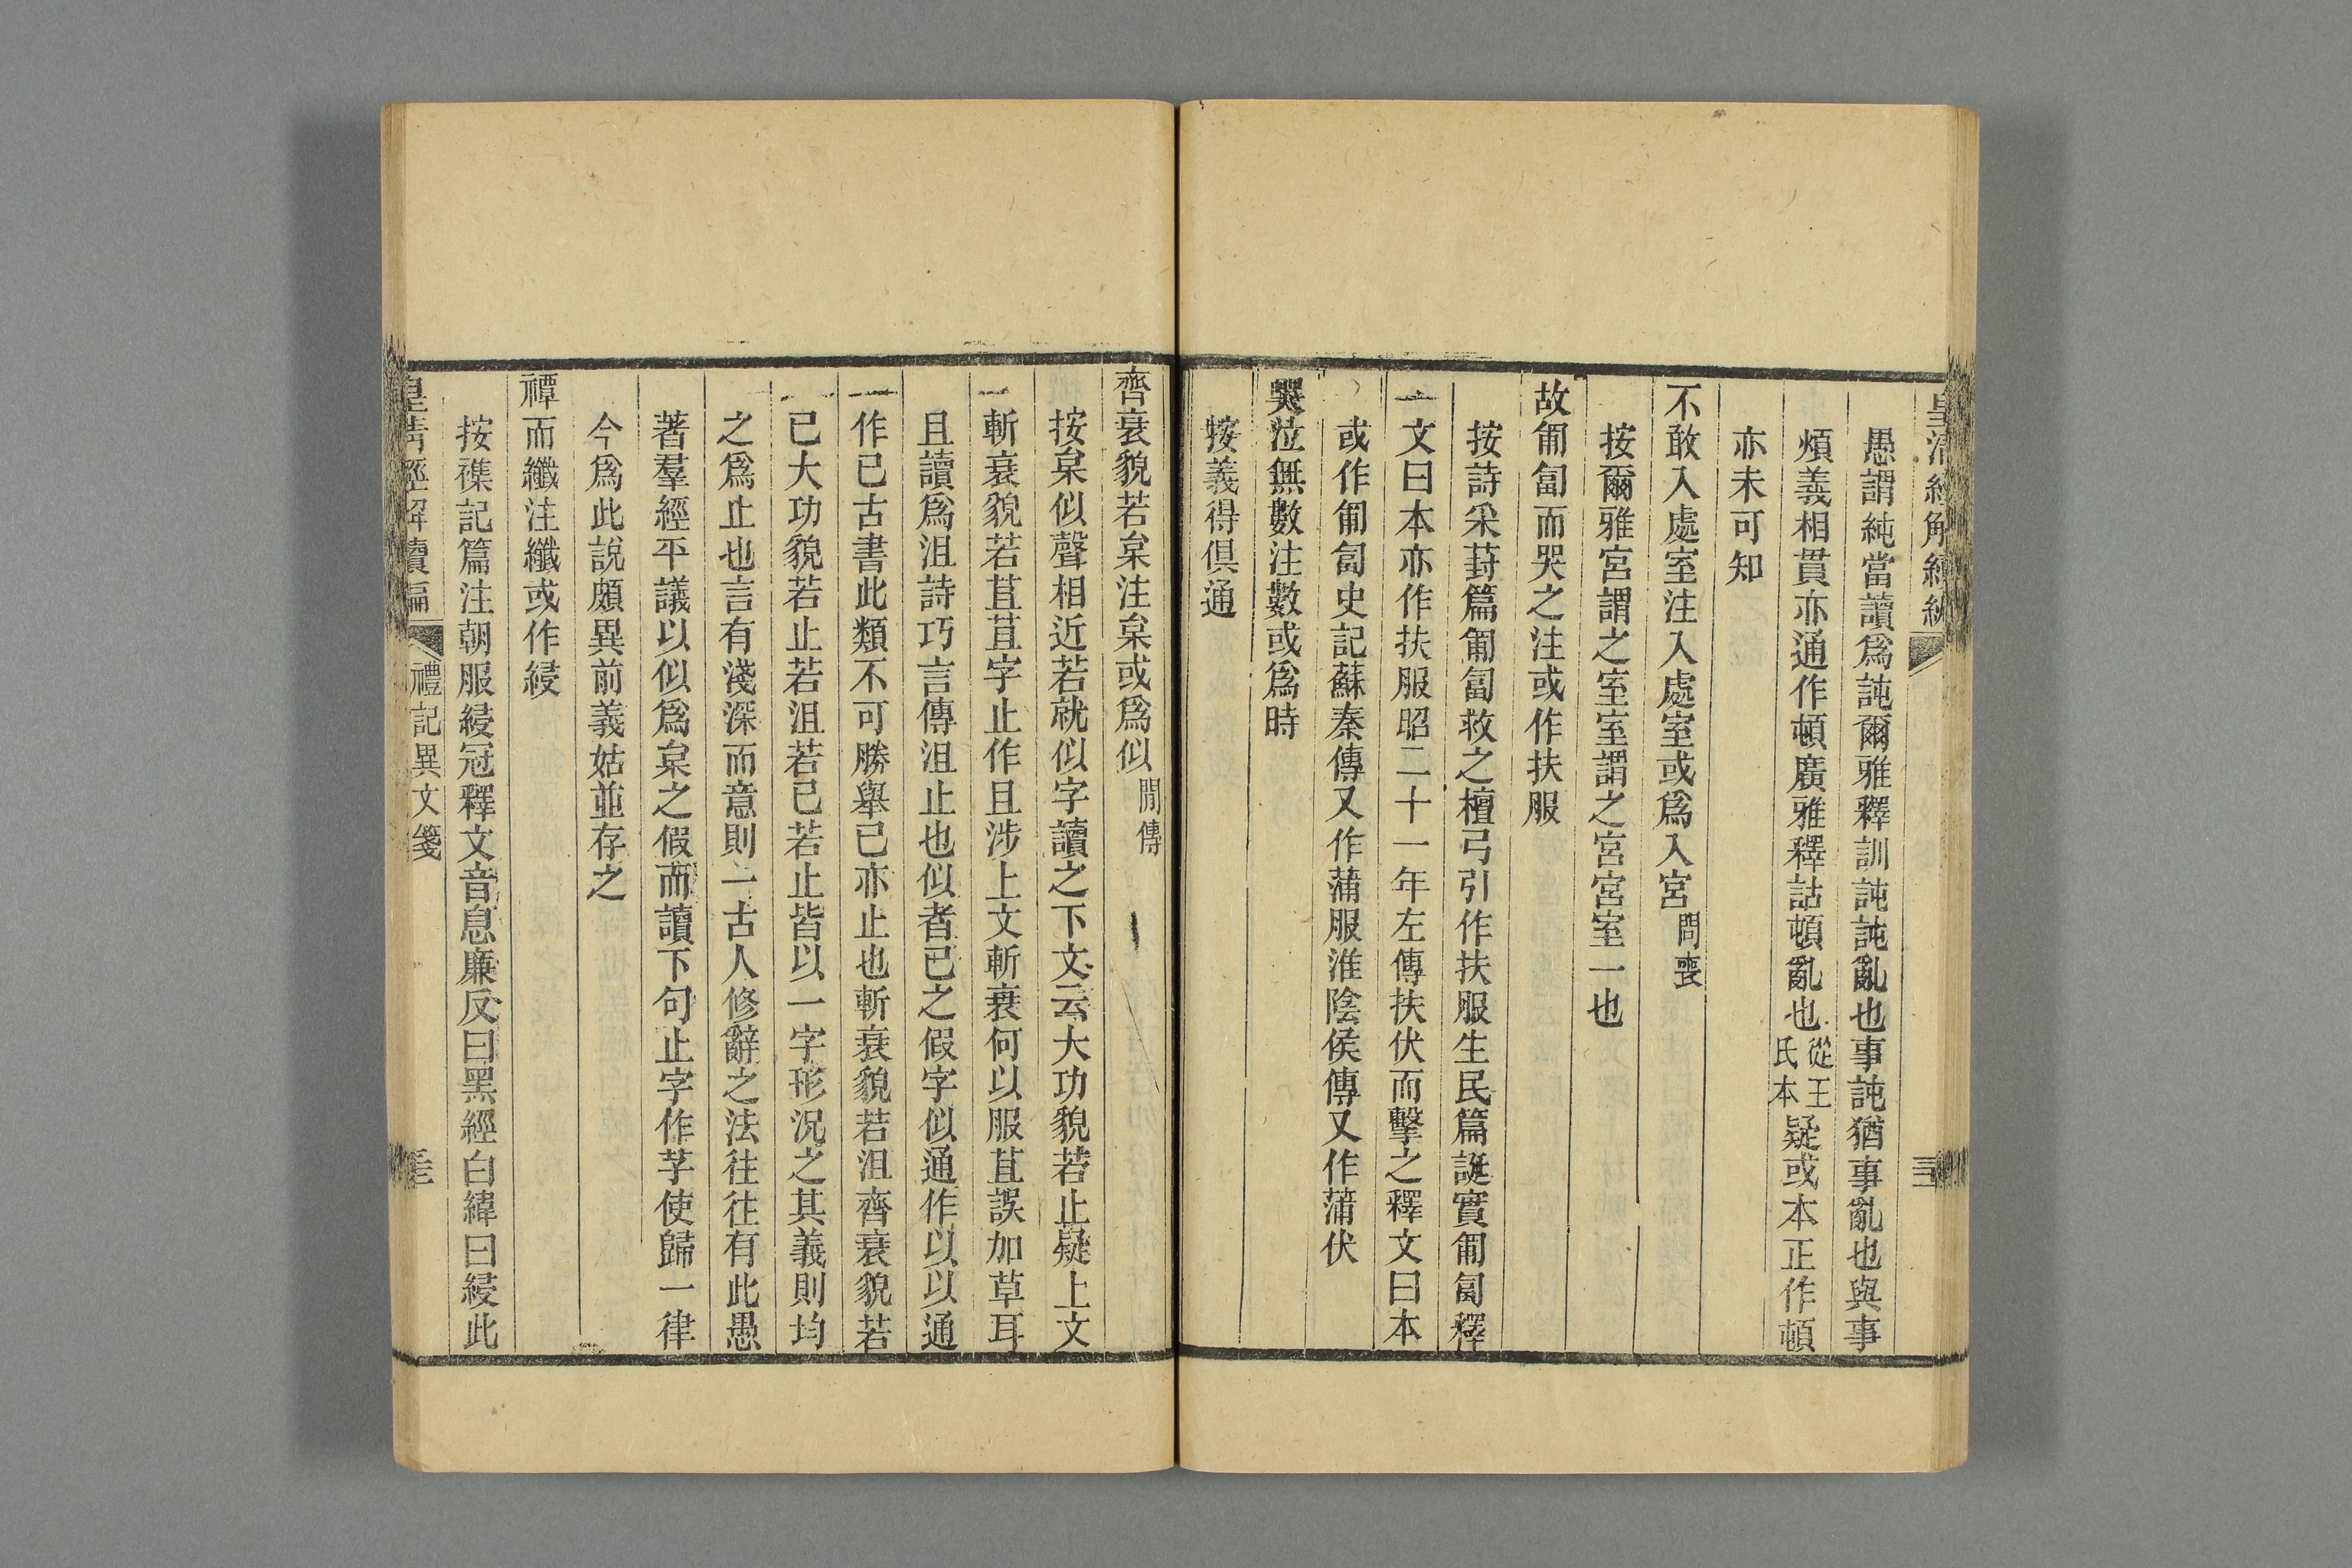 愚謂純當讀爲訰爾雅釋訓訰訰亂也事訰猶事亂也與事
煩義相貫亦通作頓廣雅釋詁頓亂也從王氏本疑或本正作頓
亦未可知
不敢入處室注入處室或爲入宮問喪
按爾雅宮謂之室室謂之宮宮室一也
故匍匐而哭之注或作扶服
按詩采葑篇匍匐救之檀弓引作扶服生民篇誕實匍匐釋
文曰本亦作扶服昭二十一年左傳扶伏而擊之釋文曰本
或作匍匐史記蘇秦傳又作蒲服淮陰侯傳又作蒲伏
哭泣無數注數或爲時
按義得俱通
齊衰貌若枲注枲或爲似閒傳
按枲似聲相近若就似字讀之下文云大功貌若止疑上文
斬衰貌若苴苴字止作且涉上文斬衰何以服苴誤加草耳
且讀爲沮詩巧言傳沮止也似者已之假字似通作以以通
作已古書此類不可勝舉已亦止也斬衰貌若沮齊衰貌若
已大功貌若止若沮若已若止皆以一字形況之其義則均
之爲止也言有淺深而意則一古人修辭之法往往有此愚
著羣經平議以似爲枲之假而讀下句止字作芓使歸一律
今爲此說頗異前義姑並存之
禫而纖注纖或作綅
按襍記篇注朝服綅冠釋文音息廉反曰黑經白緯曰綅此
皇清經解續編
禮記異文箋